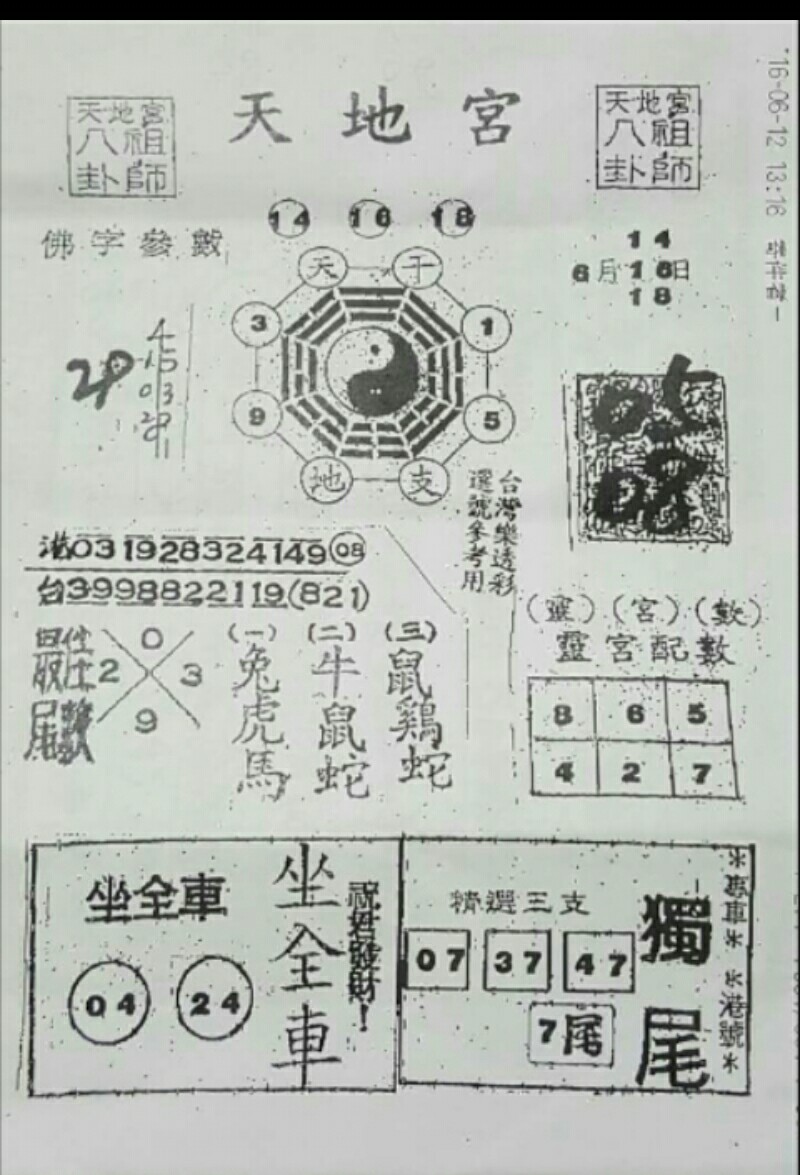 '16-06-12 13:16
天地宮
八祖
卦師
天地宮
天地宮
八祖
卦師
14 16 18
佛字參數
14
6月16日
18
天 干
3 1
9 5
地 支
05
08
台灣樂透彩
選號參考用
港03 19 28 32 41 49 08
台39 98 82 21 19 (821)
0
2 3
9
尾數
(一) (二) (三)
兔 牛 鼠
虎 鼠 鷄
馬 蛇 蛇
(靈) (宮) (數)
靈宮配數
8 6 5
4 2 7
坐全車
04 24
坐全車
祝君發財！
精選三支
07 37 47
7尾
獨尾
*專車* *港號*